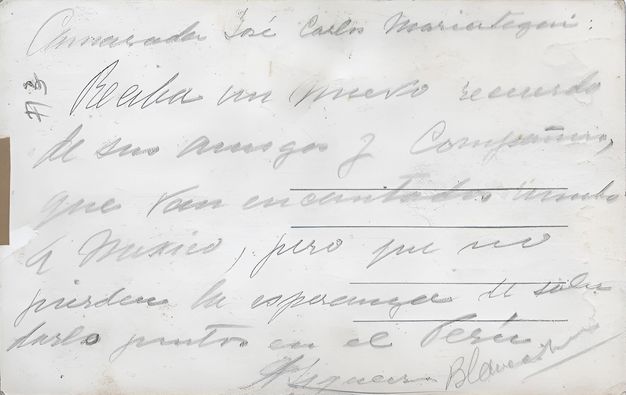 Camarada José Carlos Mariategui:
#3
Reciba un nuevo recuerdo
de sus amigos y Compañeros,
que van encantados rumbo
a Mexico, pero que no
pierden la esperanza de salu
darlo juntos en el Perú